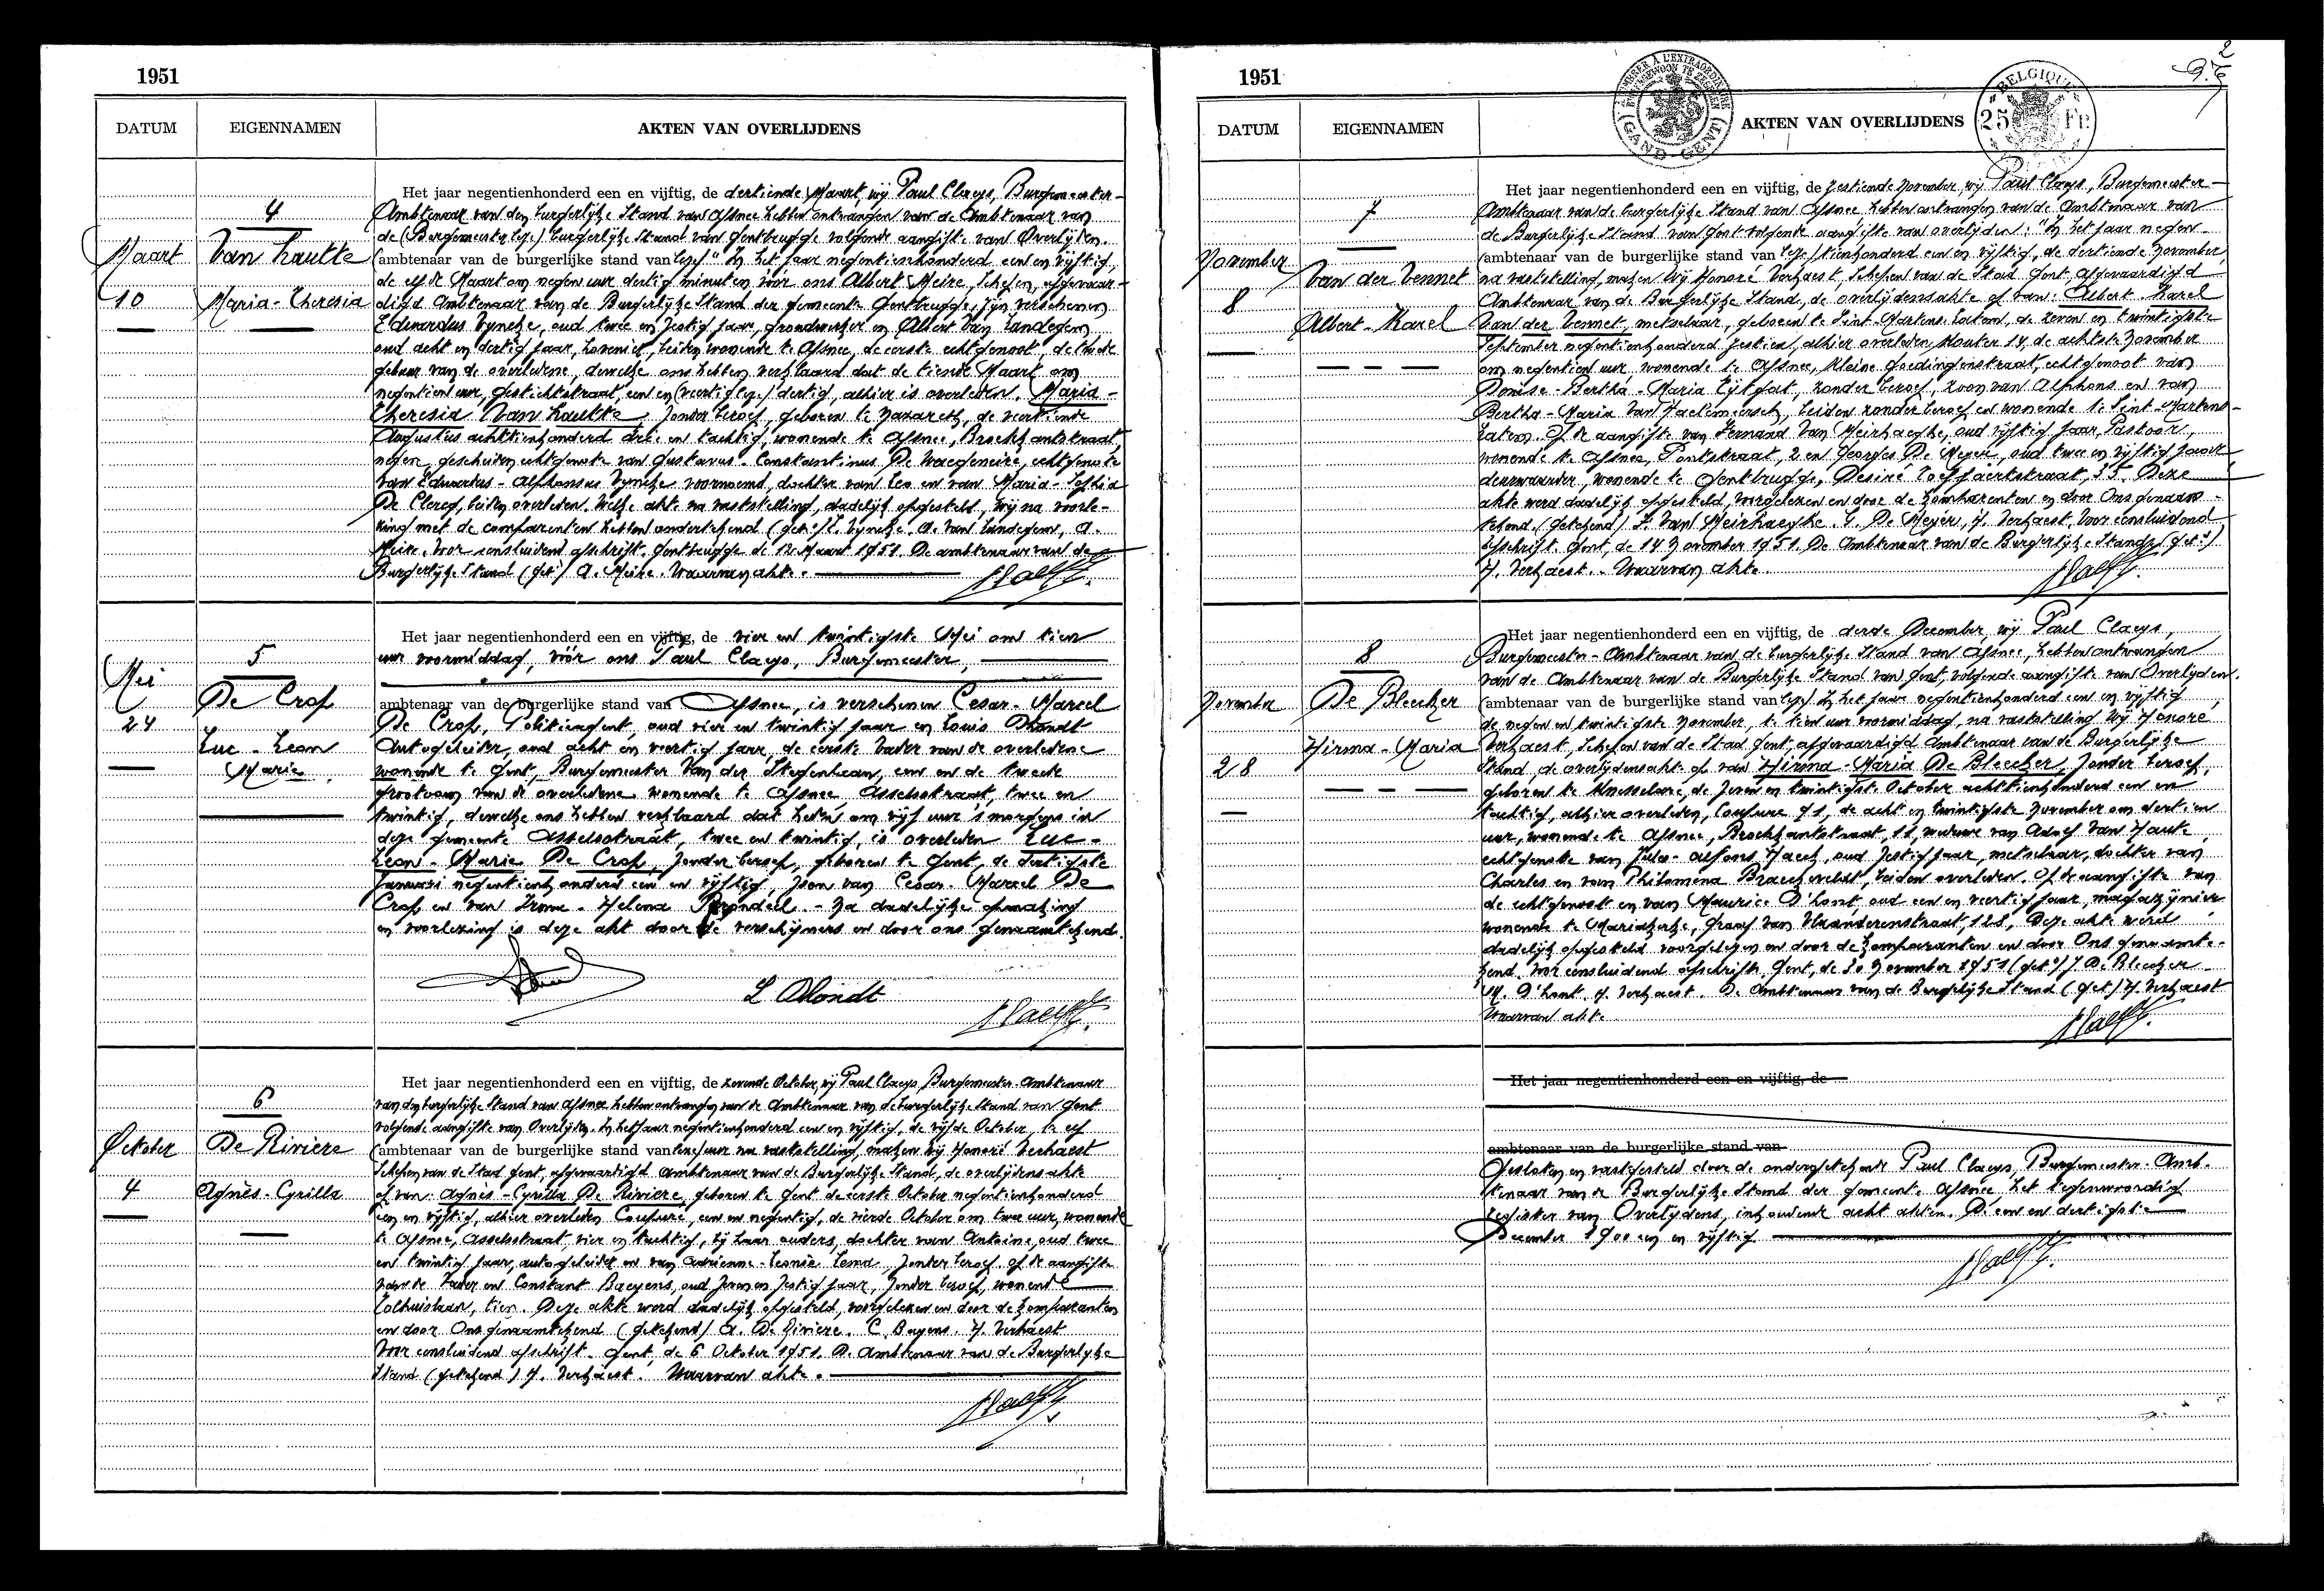 1951
DATUM
EIGENNAMEN
AKTEN VAN OVERLIJDENS
4
Maart
10
Van Hautte
Maria-Theresia
Het jaar negentienhonderd een en vijftig, de dertiende Maart, wij Paul Claeys, Burgemeester-
Ambtenaar van den burgerlijke Stand van Afsnee hebben ontvangen van de Ambtenaar van
de (Burgemeester lezs) burgerlijke Stand van Gentbrugge volgende aangifte van Overlijden.
(ambtenaar van de burgerlijke stand van lezs) "In het jaar negentienhonderd een en vijftig,
de elfde Maart om negen uur dertig minuten, vóór ons Albert Meire, Schepen, afgevaar-
digd Ambtenaar van de Burgerlijke Stand der gemeente Gentbrugge, zijn verschenen
Eduardus Vyncke, oud twee en zestig jaar, grondwerker en Albert Van Landegem
oud acht en dertig jaar, hovenier, beiden wonende te Afsnee, de eerste echtgenoot, de tweede
gebuur van de overledene, dewelke ons hebben verklaard dat de tiende Maart om
negentien uur, Gestichtstraat, een en (veertig lezs) dertig, alhier is overleden, Maria-
Theresia Van Hautte, zonder beroep, geboren te Nazareth, de veertiende
Augustus achttienhonderd drie en tachtig, wonende te Afsnee, Broekkantstraat,
negen, gescheiden echtgenote van Gustavus-Constantinus De Waegeneire, echtgenote
van Eduardus-Alphonsus Vyncke voornoemd, dochter van Leo en van Maria-Sophia
De Clercq, beiden overleden. Welke akte na vaststelling, dadelijk opgesteld, wij na voorle-
zing met de comparenten hebben ondertekend (get.) E. Vyncke. A. Van Landegem, A.
Meire. Voor eensluidend afschrift. Gentbrugge de 12 Maart 1951. De ambtenaar van de
Burgerlijke Stand (get.) A. Meire. Waarvan akte.
5
Mei
24
De Crop
Luc-Leon
Marie
Het jaar negentienhonderd een en vijftig, de vier en twintigste Mei om tien
uur voormiddag, vóór ons Paul Claeys, Burgemeester,
ambtenaar van de burgerlijke stand van Afsnee, is verschenen Cesar-Marcel
De Crop, Politieagent, oud vier en twintig jaar en Louis Dhondt
Autogeleider, oud acht en veertig jaar, de eerste vader van de overledene
wonende te Gent, Burgemeester Van der Stegenlaan, een en de tweede
grootoom van de overledene wonende te Afsnee Asselsstraat, twee en
twintig, dewelke ons hebben verklaard dat heden om vijf uur 's morgens in
deze gemeente Asselsstraat, twee en twintig, is overleden Luc-
Leon-Marie De Crop, zonder beroep, geboren te Gent, de dertigste
Januari negentienhonderd een en vijftig, zoon van Cesar-Marcel De
Crop en van Irene-Helena - Na dadelijke opmaking
en voorlezing is deze akt door de verschijners en door ons genaamtekend.
L Dhondt
6
October
4
De Riviere
Agnès-Cyrilla
Het jaar negentienhonderd een en vijftig, de zevende October, wij Paul Claeys, Burgemeester-Ambtenaar
van den burgerlijke Stand van Afsnee hebben ontvangen van de Ambtenaar van de burgerlijke Stand van Gent
volgende aangifte van Overlijden. In het jaar negentienhonderd een en vijftig, de vijfde October, te elf
(ambtenaar van de burgerlijke stand van lezs) uur na vaststelling, maken wij Honoré Verhaest
Schepen van de Stad Gent, afgevaardigd Ambtenaar van de Burgerlijke Stand, de overlijdensakte
op van: Agnès-Cyrilla De Riviere, geboren te Gent de eerste October negentienhonderd
een en vijftig, alhier overleden Coupure, een en negentig, de vierde October om twee uur, wonende
te Afsnee, Asselsstraat, vier en tachtig, bij haar ouders, dochter van Antoine, oud twee
en twintig jaar, autogeleider en van Adrienne-Leonie Lema, zonder beroep. Op de aangifte
van de vader en Constant Baeyens, oud zeven en zestig jaar, zonder beroep, wonende
Tolhuislaan, tien. Deze akte werd dadelijk opgesteld, voorgelezen en door de komparanten
en door Ons genaamtekend (getekend) A. De Riviere. C. Bayens. H. Verhaest
Voor eensluidend afschrift. Gent, de 6 October 1951. De Ambtenaar van de Burgerlijke
Stand (getekend) H. Verhaest. Waarvan akte.
1951
2
TIMBRE A L'EXTRAORDINAIRE
BUITENGEWOON TE ZEGELEN
GAND-GENT
BELGIQUE
25 Fr.
DATUM
EIGENNAMEN
AKTEN VAN OVERLIJDENS
7
November
8
Van der Vennet
Albert-Karel
Het jaar negentienhonderd een en vijftig, de zestiende November, wij Paul Claeys, Burgemeester-
Ambtenaar van de burgerlijke Stand van Afsnee hebben ontvangen van de Ambtenaar van
de Burgerlijke Stand van Gent volgende aangifte van overlijden: "In het jaar negen-
(ambtenaar van de burgerlijke stand van lezs) tienhonderd een en vijftig, de dertiende November
na vaststelling maken wij Honoré Verhaest, Schepen van de Stad Gent, afgevaardigd
Ambtenaar van de Burgerlijke Stand, de overlijdensakte op van: Albert-Karel
Van der Vennet, metselaar, geboren te Sint-Martens-Latem, de zeven en twintigste
September negentienhonderd zestien, alhier overleden, Kouter 14, de achtste November
om negentien uur wonende te Afsnee, Kleine Goedingenstraat, echtgenoot van
Denise-Bertha-Maria Eylgat, zonder beroep, zoon van Alphons en van
Bertha-Maria Van Haelemeersch, beiden zonder beroep en wonende te Sint-Martens-
Latem. Op de aangifte van Fernand Van Meirhaeghe, oud vijftig jaar, Pastoor,
wonende te Afsnee, Pontstraat, 2 en Georges De Meyer, oud twee en vijftig jaar
deurwaarder, wonende te Gentbrugge, Desiré Toeffaertstraat, 35. Deze
akte werd dadelijk opgesteld, voorgelezen en door de komparenten en door Ons genaam-
tekend. (getekend) F. Van Meirhaeghe. G. De Meyer, H. Verhaest. Voor eensluidend
afschrift. Gent, de 14 November 1951. De Ambtenaar van de Burgerlijke Stand (get.)
H. Verhaest. - Waarvan akte.
8
November
28
De Bleecker
Hirma-Maria
Het jaar negentienhonderd een en vijftig, de derde December, wij Paul Claeys,
Burgemeester-Ambtenaar van de burgerlijke Stand van Afsnee, hebben ontvangen
van de Ambtenaar van de Burgerlijke Stand van Gent, volgende aangifte van Overlijden.
(ambtenaar van de burgerlijke stand van lezs) In het jaar negentienhonderd een en vijftig,
de negen en twintigste November, te tien uur voormiddag, na vaststelling wij Honoré
Verhaest, Schepen van de Stad Gent, afgevaardigd Ambtenaar van de Burgerlijke
Stand, de overlijdensakte op van Hirma-Maria De Bleecker, zonder beroep,
geboren te Knesselare, de zeven en twintigste October achttienhonderd een en
tachtig, alhier overleden, Coupure 91, de acht en twintigste November om dertien
uur, wonende te Afsnee, Broekkantstraat, 11, weduwe van Adolf Van Haute,
echtgenote van Jules-Alfons Haeck, oud zestig jaar, metselaar, dochter van
Charles en van Philomena Braeckevelt, beiden overleden. Op de aangifte van
de echtgenoot en van Maurice D'hont, oud een en veertig jaar, magazijnier
wonende te Mariakerke, Graaf van Vlaanderenstraat, 128, Deze akte werd
dadelijk opgesteld voorgelezen en door de komparanten en door Ons genaamte-
kend. Voor eensluidend afschrift. Gent, de 30 November 1951 (get.) J. De Bleecker
M. D'hont. H. Verhaest. De Ambtenaar van de Burgerlijke Stand (get.) H. Verhaest
Waarvan akte.
Het jaar negentienhonderd een en vijftig, de
ambtenaar van de burgerlijke stand van
Gesloten en vastgesteld door de ondergetekende Paul Claeys, Burgemeester-Amb-
tenaar van de Burgerlijke Stand der gemeente Afsnee het tegenwoordig
register van Overlijdens, inhoudende acht akten. De een en dertigste
December 1900 een en vijftig